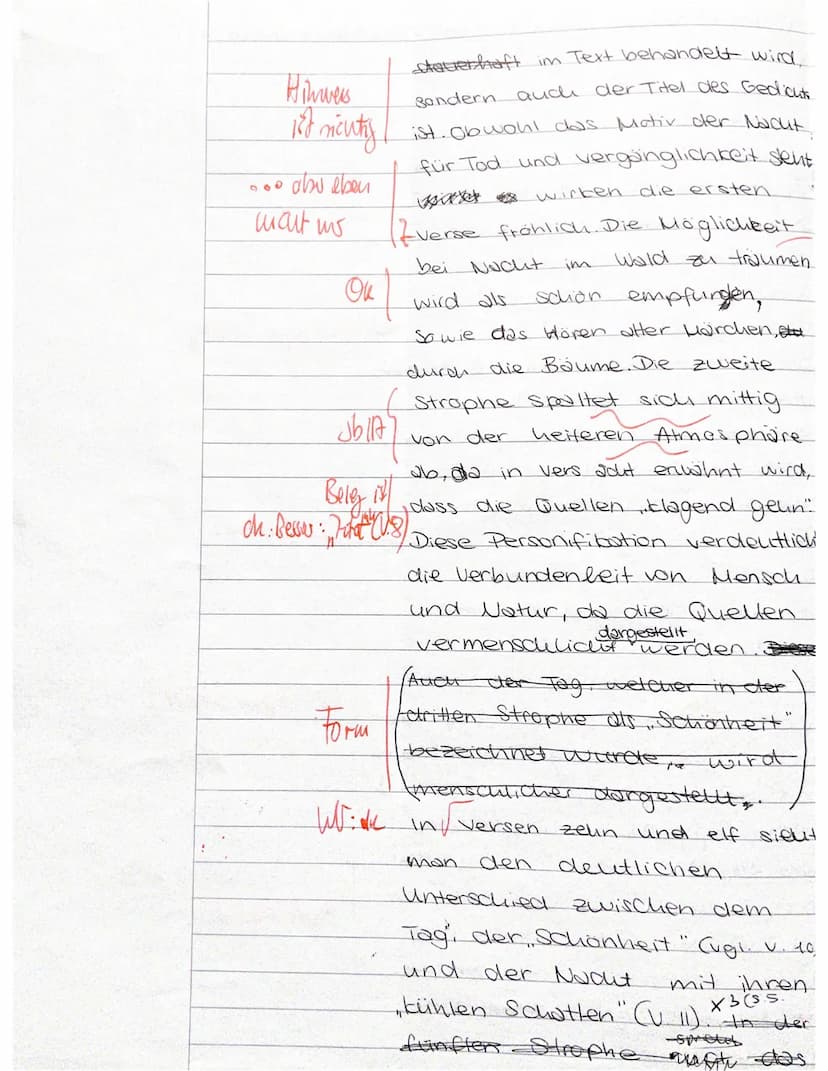 steuerhaft im Text behandelt wird,
Hinweis
sondern auch der Titel des Gedichts
ist richtig
ist. Obwohl das Motiv der Nacht
für Tod und vergänglichkeit seht
... aber eben
wirken die ersten
nicht nur
Z
verse fröhlich. Die Möglichkeit
bei Nacht im Wald zu träumen
Ok
wird als schön empfunden,
sowie das Hören alter Märchen,
durch die Bäume. Die zweite
Strophe spaltet sich mittig
Sb A
von der heiteren Atmosphäre
ab, da in vers acht erwähnt wird,
Beleg ist
dass die Quellen „klagend gehn".
ok. Besser: „Zitat" (V.8)
Diese Personifikation verdeutlich
die Verbundenheit von Mensch
und Natur, da die Quellen
dargestellt
vermenschlicht werden. Diese
(Auch der Tag, welcher in der
Form
dritten Strophe als „Schönheit"
bezeichnet wurde, wird
menschlicher dargestellt.)
W: die
in √ versen zehn und elf sieht
man den deutlichen
Unterschied zwischen dem
Tag, der „Schönheit" (vgl. v. 10
und der Nacht mit ihren
„kühlen Schatten" (V. 11). x b(s s.
In der
fünften Strophe das